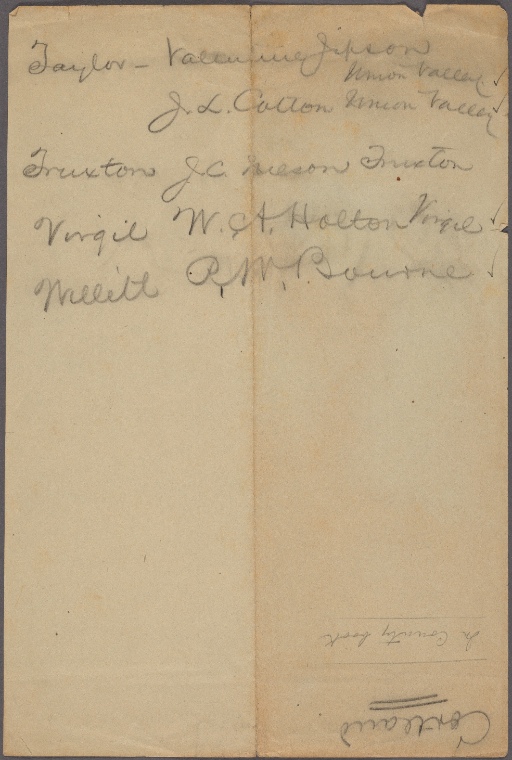 Taylor - Valentine Jipson
Union Valley ✓
J. L. Cotton Union Valley ✓
Truxton J. C. Truxton
Virgil W. A. Holton Virgil ✓
Willett R. W. Bourne ✓
In County book
Cortland